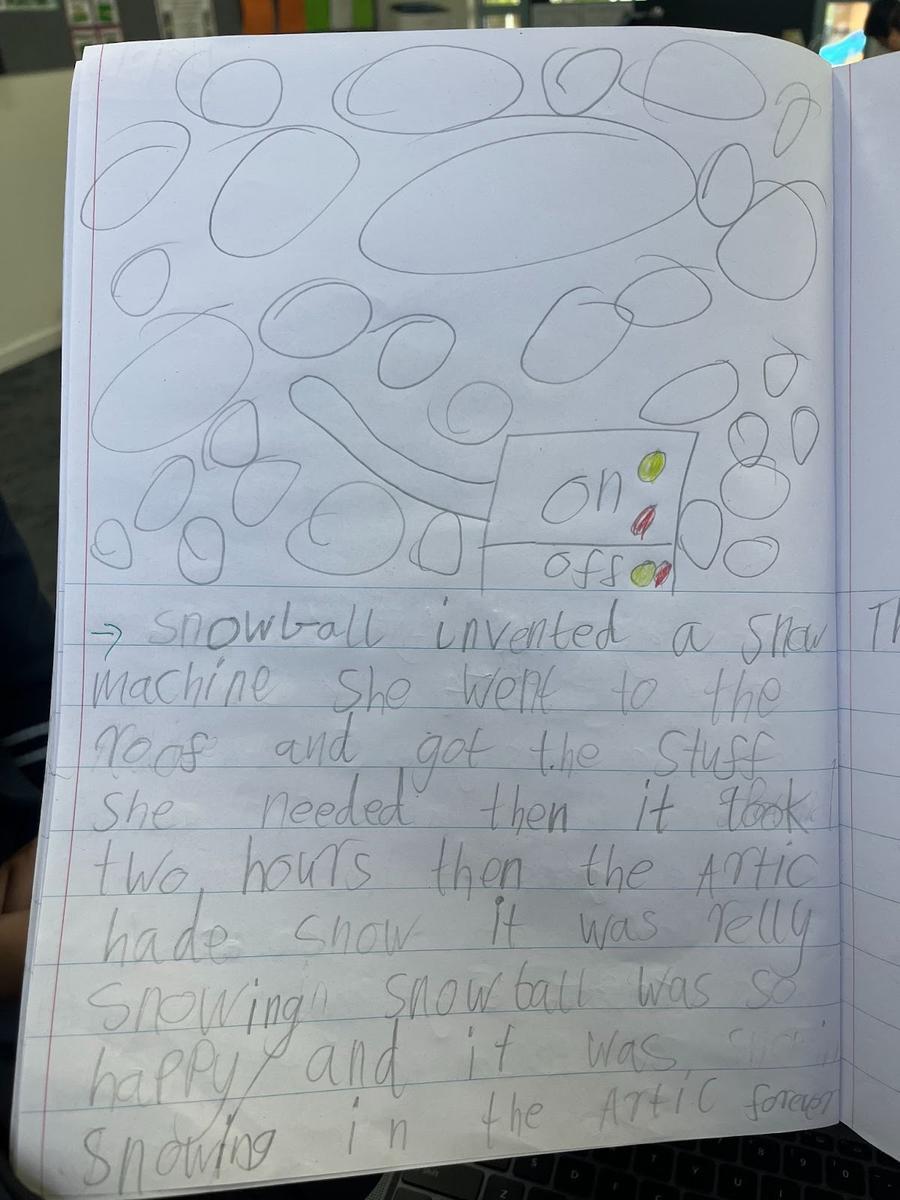 on
off
→ snowball invented a snow
machine she went to the
roof and got the stuff
she needed then it took
two hours then the Artic
hade snow it was relly
snowing snowball was so
happy and it was
snowing in the Artic forever
Th